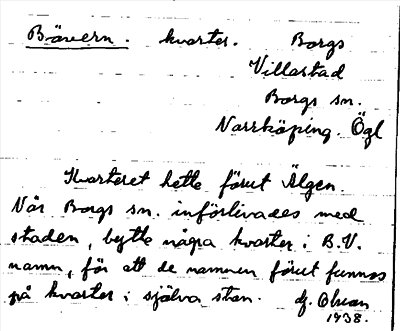 Bävern. kvarter. Borgs
Villastad
Borgs sn.
Norrköping. Ögl
Kvarteret hette förut Älgen.
När Borgs sn. införlivades med
staden, bytte några kvarter i B.V.
namn, för att de namnen förut funnos
på kvarter i själva stan. Olson
1938.